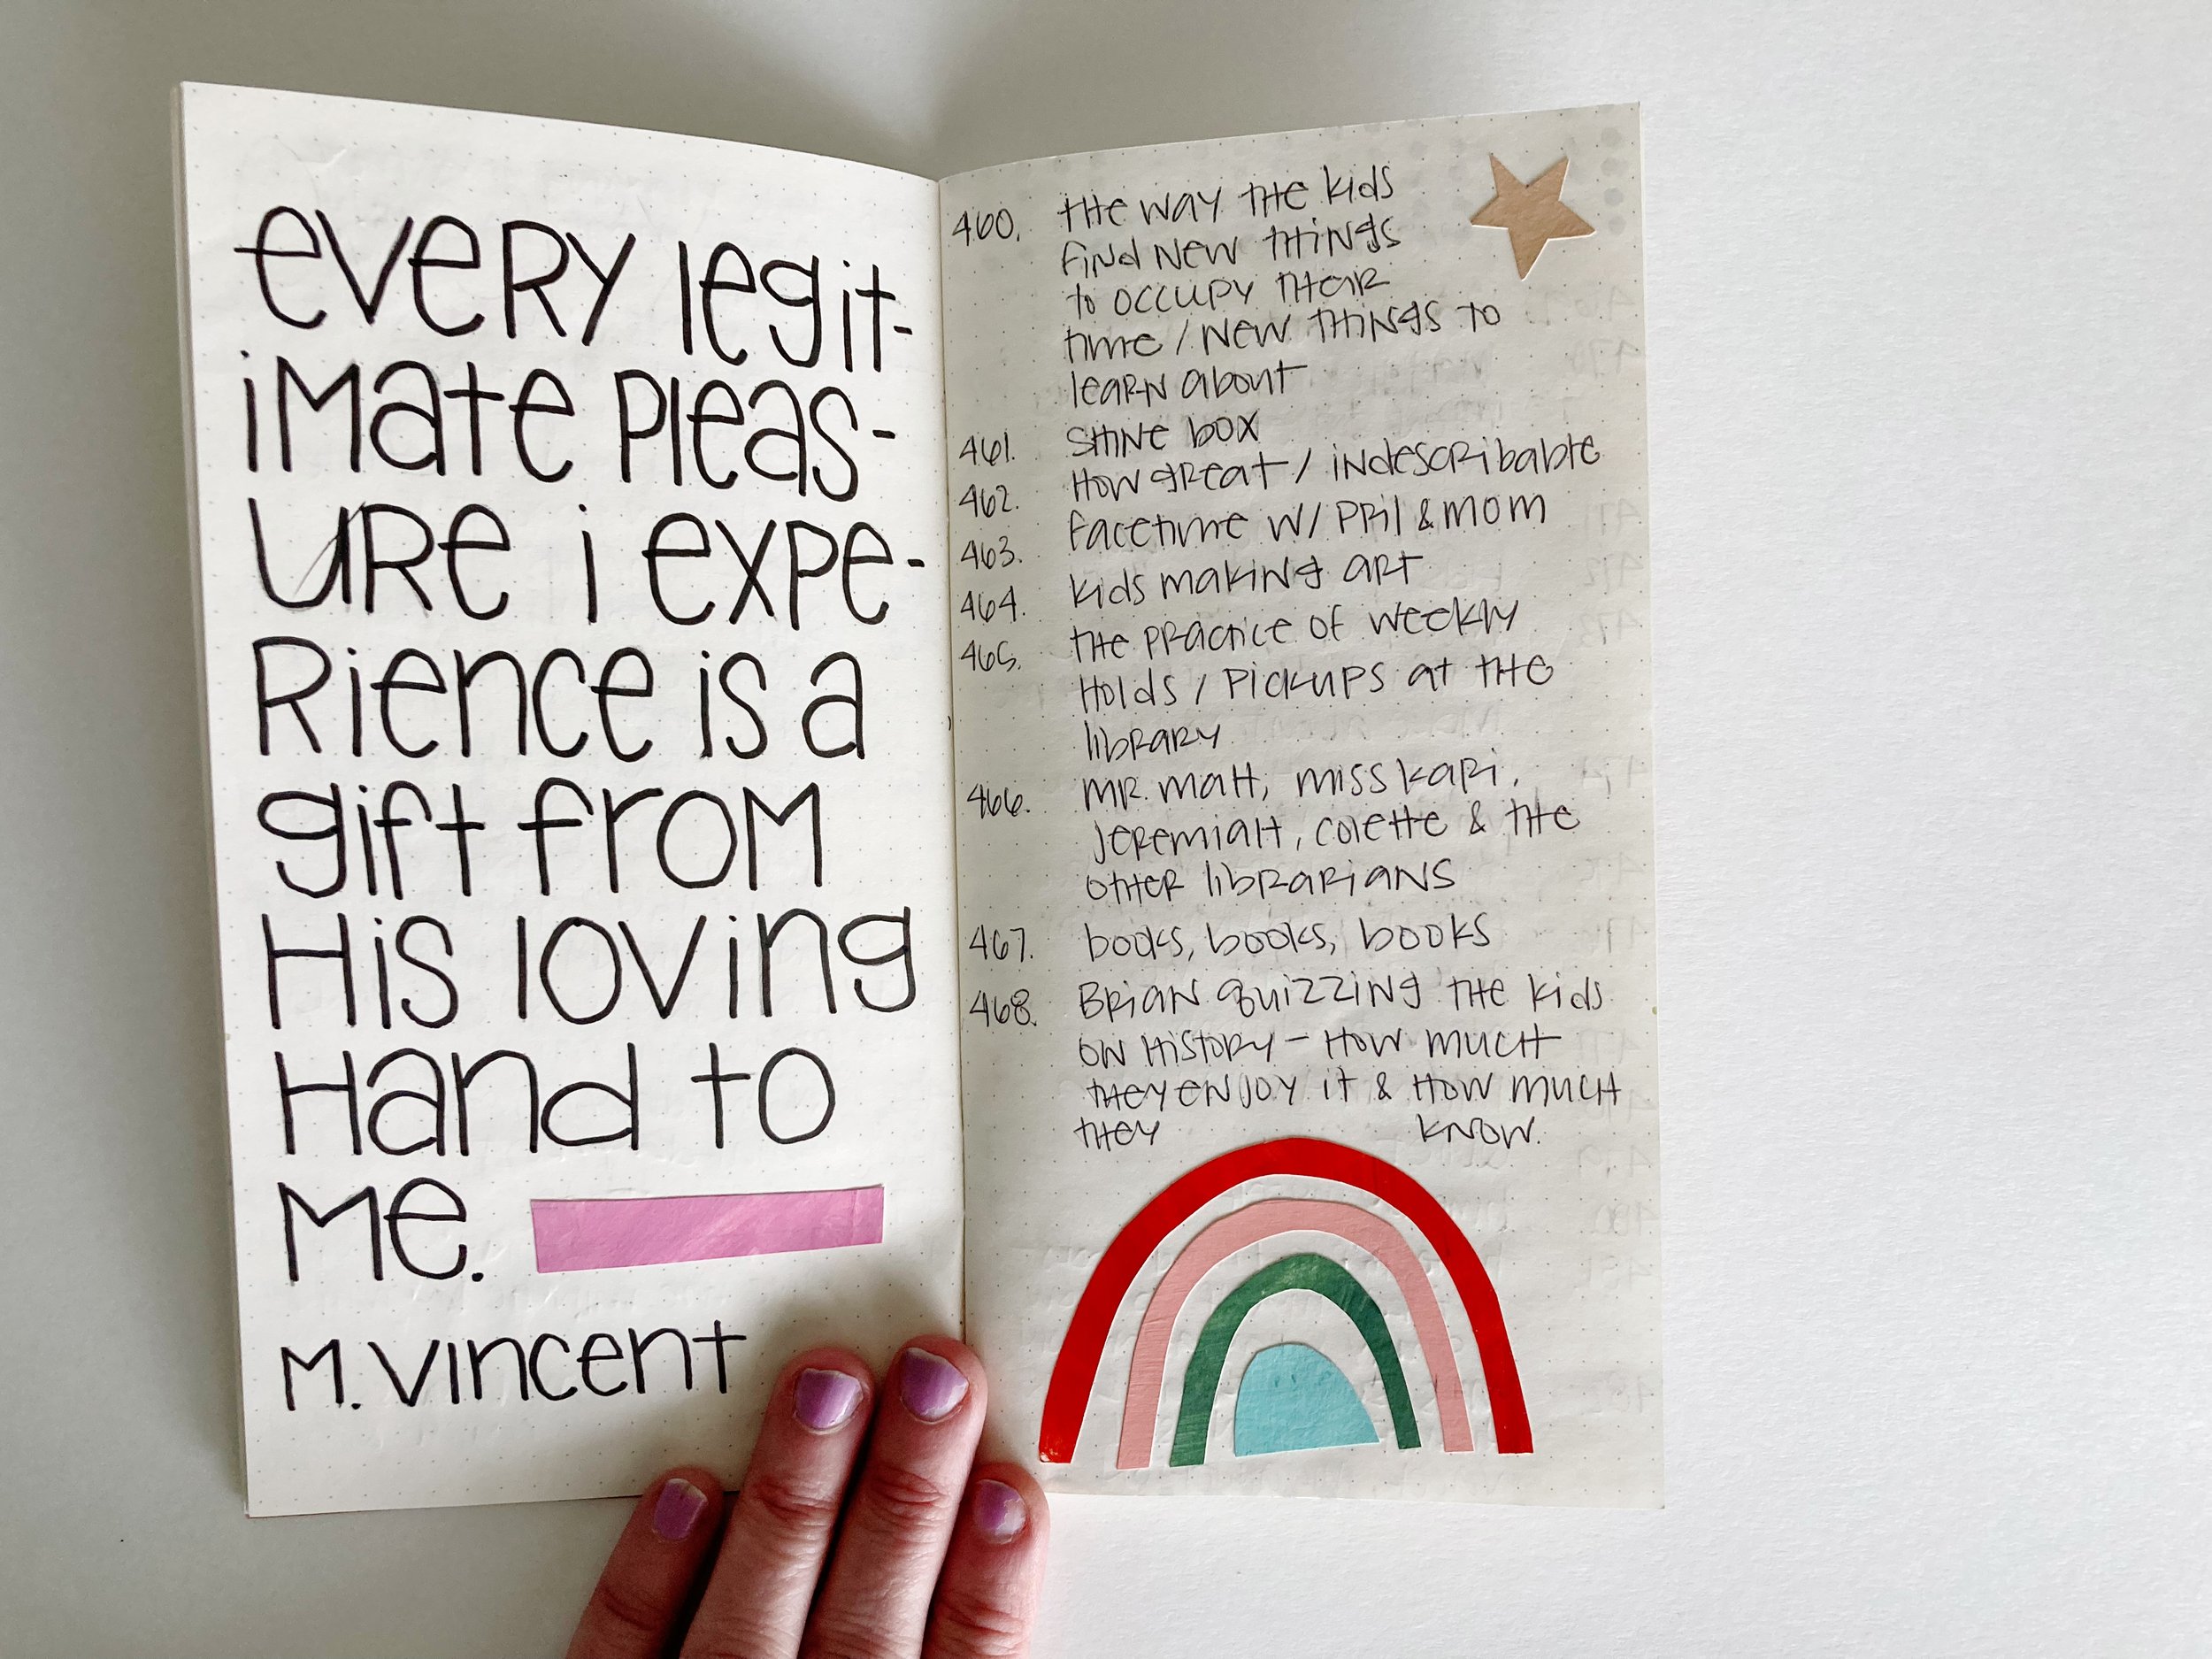 eveRy legit-
iMate Pleas-
URe i expe-
Rience is a
gift froM
His loving
Hand to
Me.
M. Vincent
460. tHe way tHe kids
find New tHiNgs
to occupy tHeiR
time / New tHiNgs to
leaRN about
461. SHiNe box
462. How gReat / iNdescRibable
463. facetime w/ PRil & mom
464. kids makiNg aRt
465. tHe pRactice of weekly
Holds / Pickups at tHe
libRaRy
466. mR. matt, miss kaRi,
JeRemiaH, colette & tHe
otHeR libRaRiaNs
467. books, books, books
468. BRiaN quizziNg tHe kids
oN HistoRy – How mucH
tHey eNjoy it & How mucH
tHey kNow.